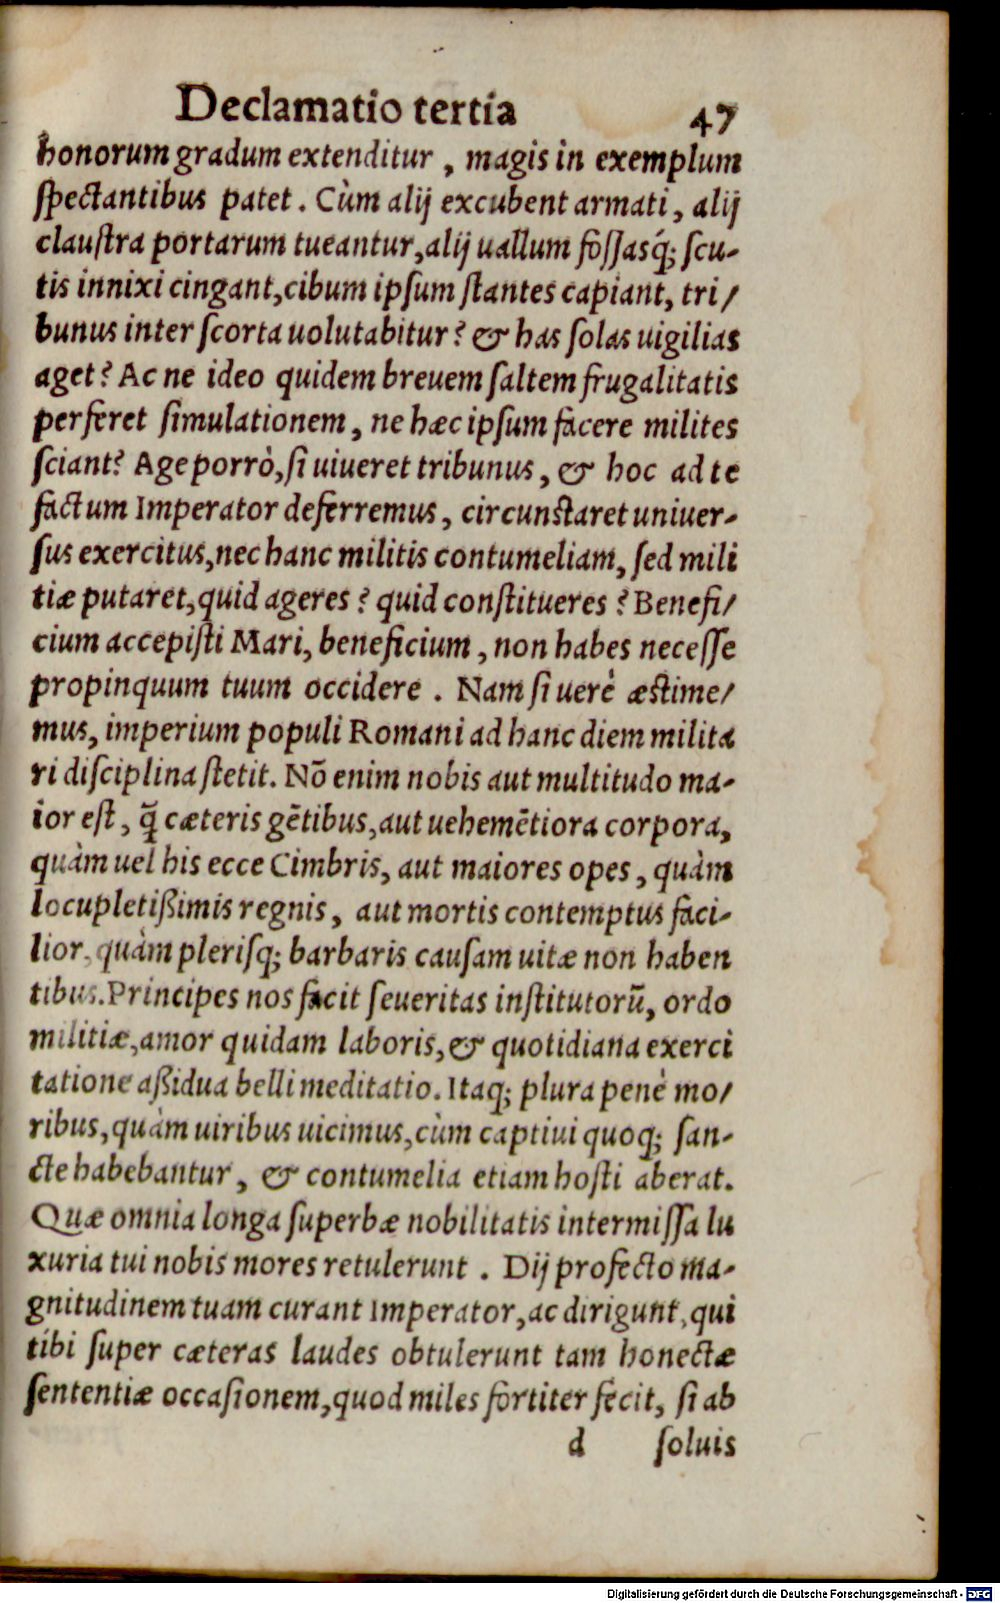 Declamatio tertia 47
honorum gradum extenditur, magis in exemplum
spectantibus patet. Cùm alij excubent armati, alij
claustra portarum tueantur, alij uallum fossasq́; scu-
tis innixi cingant, cibum ipsum stantes capiant, tri/
bunus inter scorta uolutabitur? & has solas uigilias
aget? Ac ne ideo quidem breuem saltem frugalitatis
perferet simulationem, ne hæc ipsum facere milites
sciant? Age porrò, si uiueret tribunus, & hoc ad te
factum Imperator deferremus, circunstaret uniuer-
sus exercitus, nec hanc militis contumeliam, sed mili
tiæ putaret, quid ageres? quid constitueres? Benefi/
cium accepisti Mari, beneficium, non habes necesse
propinquum tuum occidere. Nam si uerè æstime/
mus, imperium populi Romani ad hanc diem milita
ri disciplina stetit. Nō enim nobis aut multitudo ma-
ior est, q̄ cæteris gētibus, aut uehemētiora corpora,
quàm uel his ecce Cimbris, aut maiores opes, quàm
locupletißimis regnis, aut mortis contemptus faci-
lior, quàm plerisq; barbaris causam uitæ non haben
tibus. Principes nos facit seueritas institutorū, ordo
militiæ, amor quidam laboris, & quotidiana exerci
tatione aßidua belli meditatio. Itaq; plura penè mo/
ribus, quàm uiribus uicimus, cùm captiui quoq; san-
cte habebantur, & contumelia etiam hosti aberat.
Quæ omnia longa superbæ nobilitatis intermissa lu
xuria tui nobis mores retulerunt. Dij profecto ma-
gnitudinem tuam curant Imperator, ac dirigunt, qui
tibi super cæteras laudes obtulerunt tam honectæ
sententiæ occasionem, quod miles fortiter fecit, si ab
d soluis
Digitalisierung gefördert durch die Deutsche Forschungsgemeinschaft - DFG